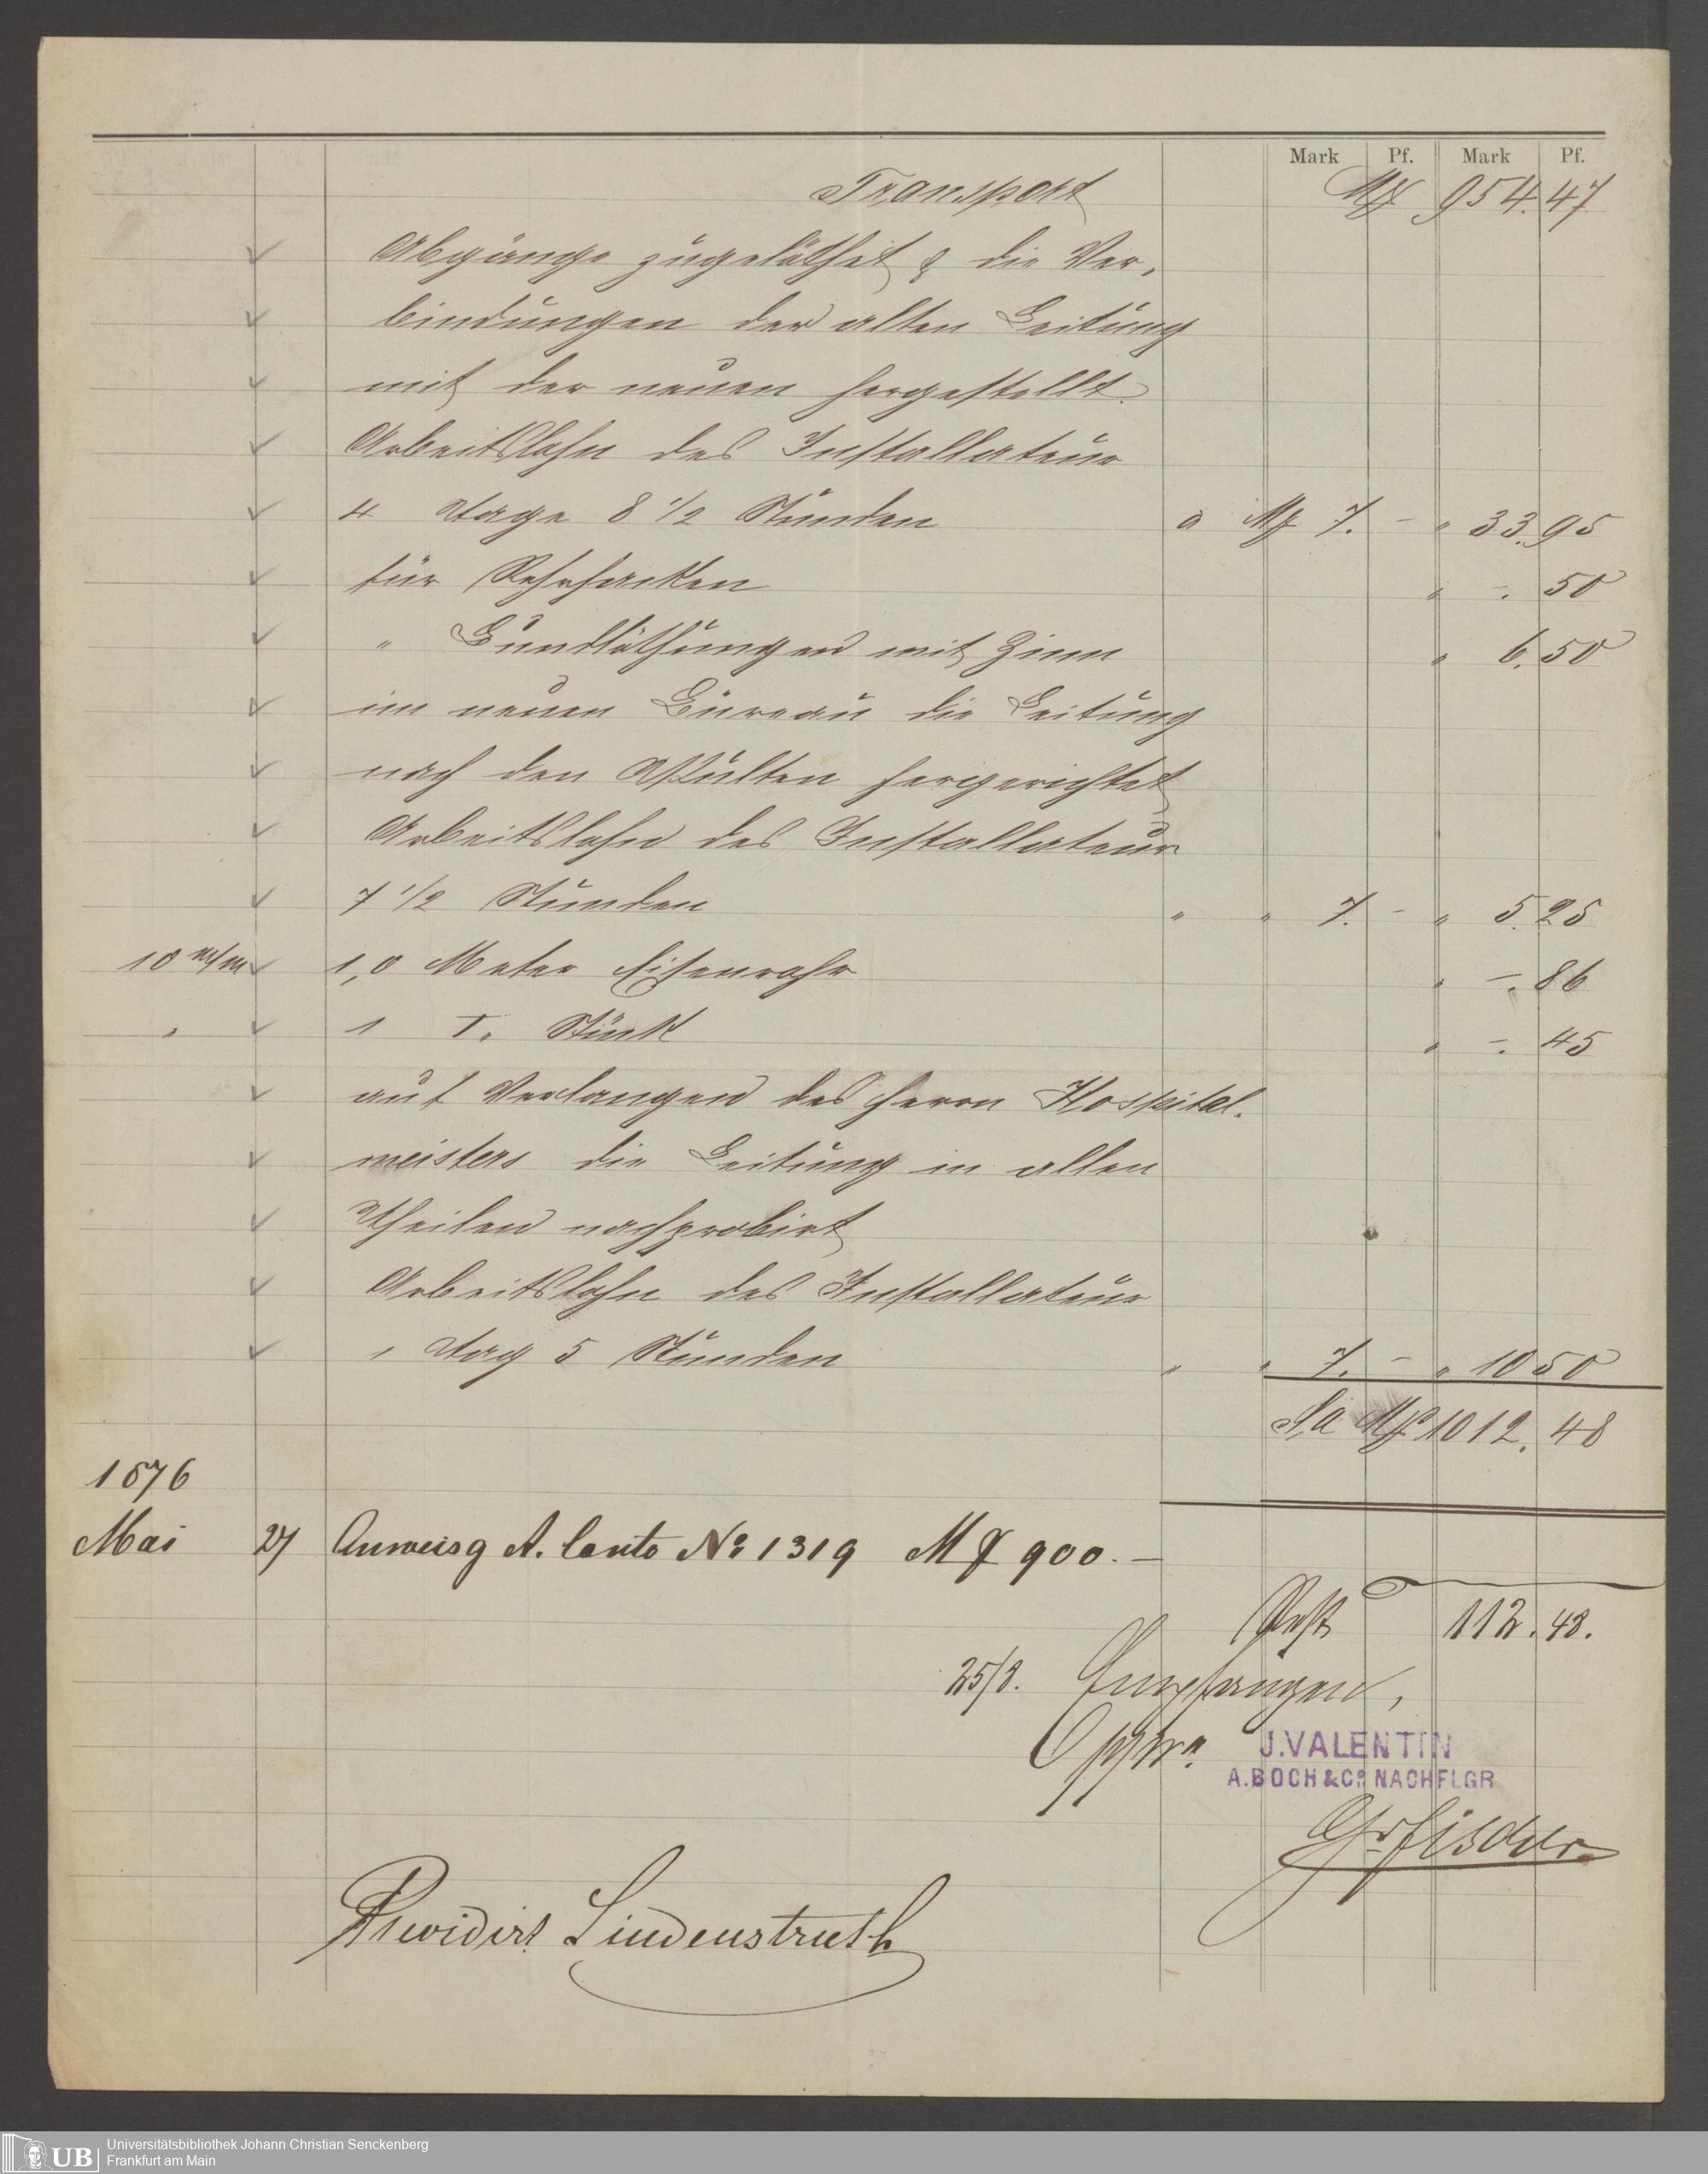 Mark Pf. Mark Pf.
Transport M 954.47
Abgänge zugelöthet & die Ver-
bindungen der alten Leitung
mit der neuen hergestellt.
Arbeitslohn des Installateur
4 Tage 8 1/2 Stunden a M 7. - " 33.95
für Rohrhacken " -. 50
" Bundlöthungen mit Zinn " 6.50
im neuen Büreau die Leitung
nach den Pulten hergerichtet
Arbeitslohn des Installateur
7 1/2 Stunden " " 7. - " 5.25
10 m/m 1,0 Meter Eisenrohr " -. 86
" 1 T. Stück " -. 45
auf Verlangen des Herrn Hospital-
meisters die Leitung in allen
Theilen nachprobirt
Arbeitslohn des Installateur
1 Tag 5 Stunden " " 7. - " 10 50
Sa M 1012. 48
1876
Mai 27 Anweisg A. Conto No 1319 M 900. -
Rest 112. 48.
25/8. Empfangen,
J. VALENTIN
A. BOCH & Co NACHFLGR
Fischer
Revidirt Lindenstruth
UB Universitätsbibliothek Johann Christian Senckenberg
Frankfurt am Main